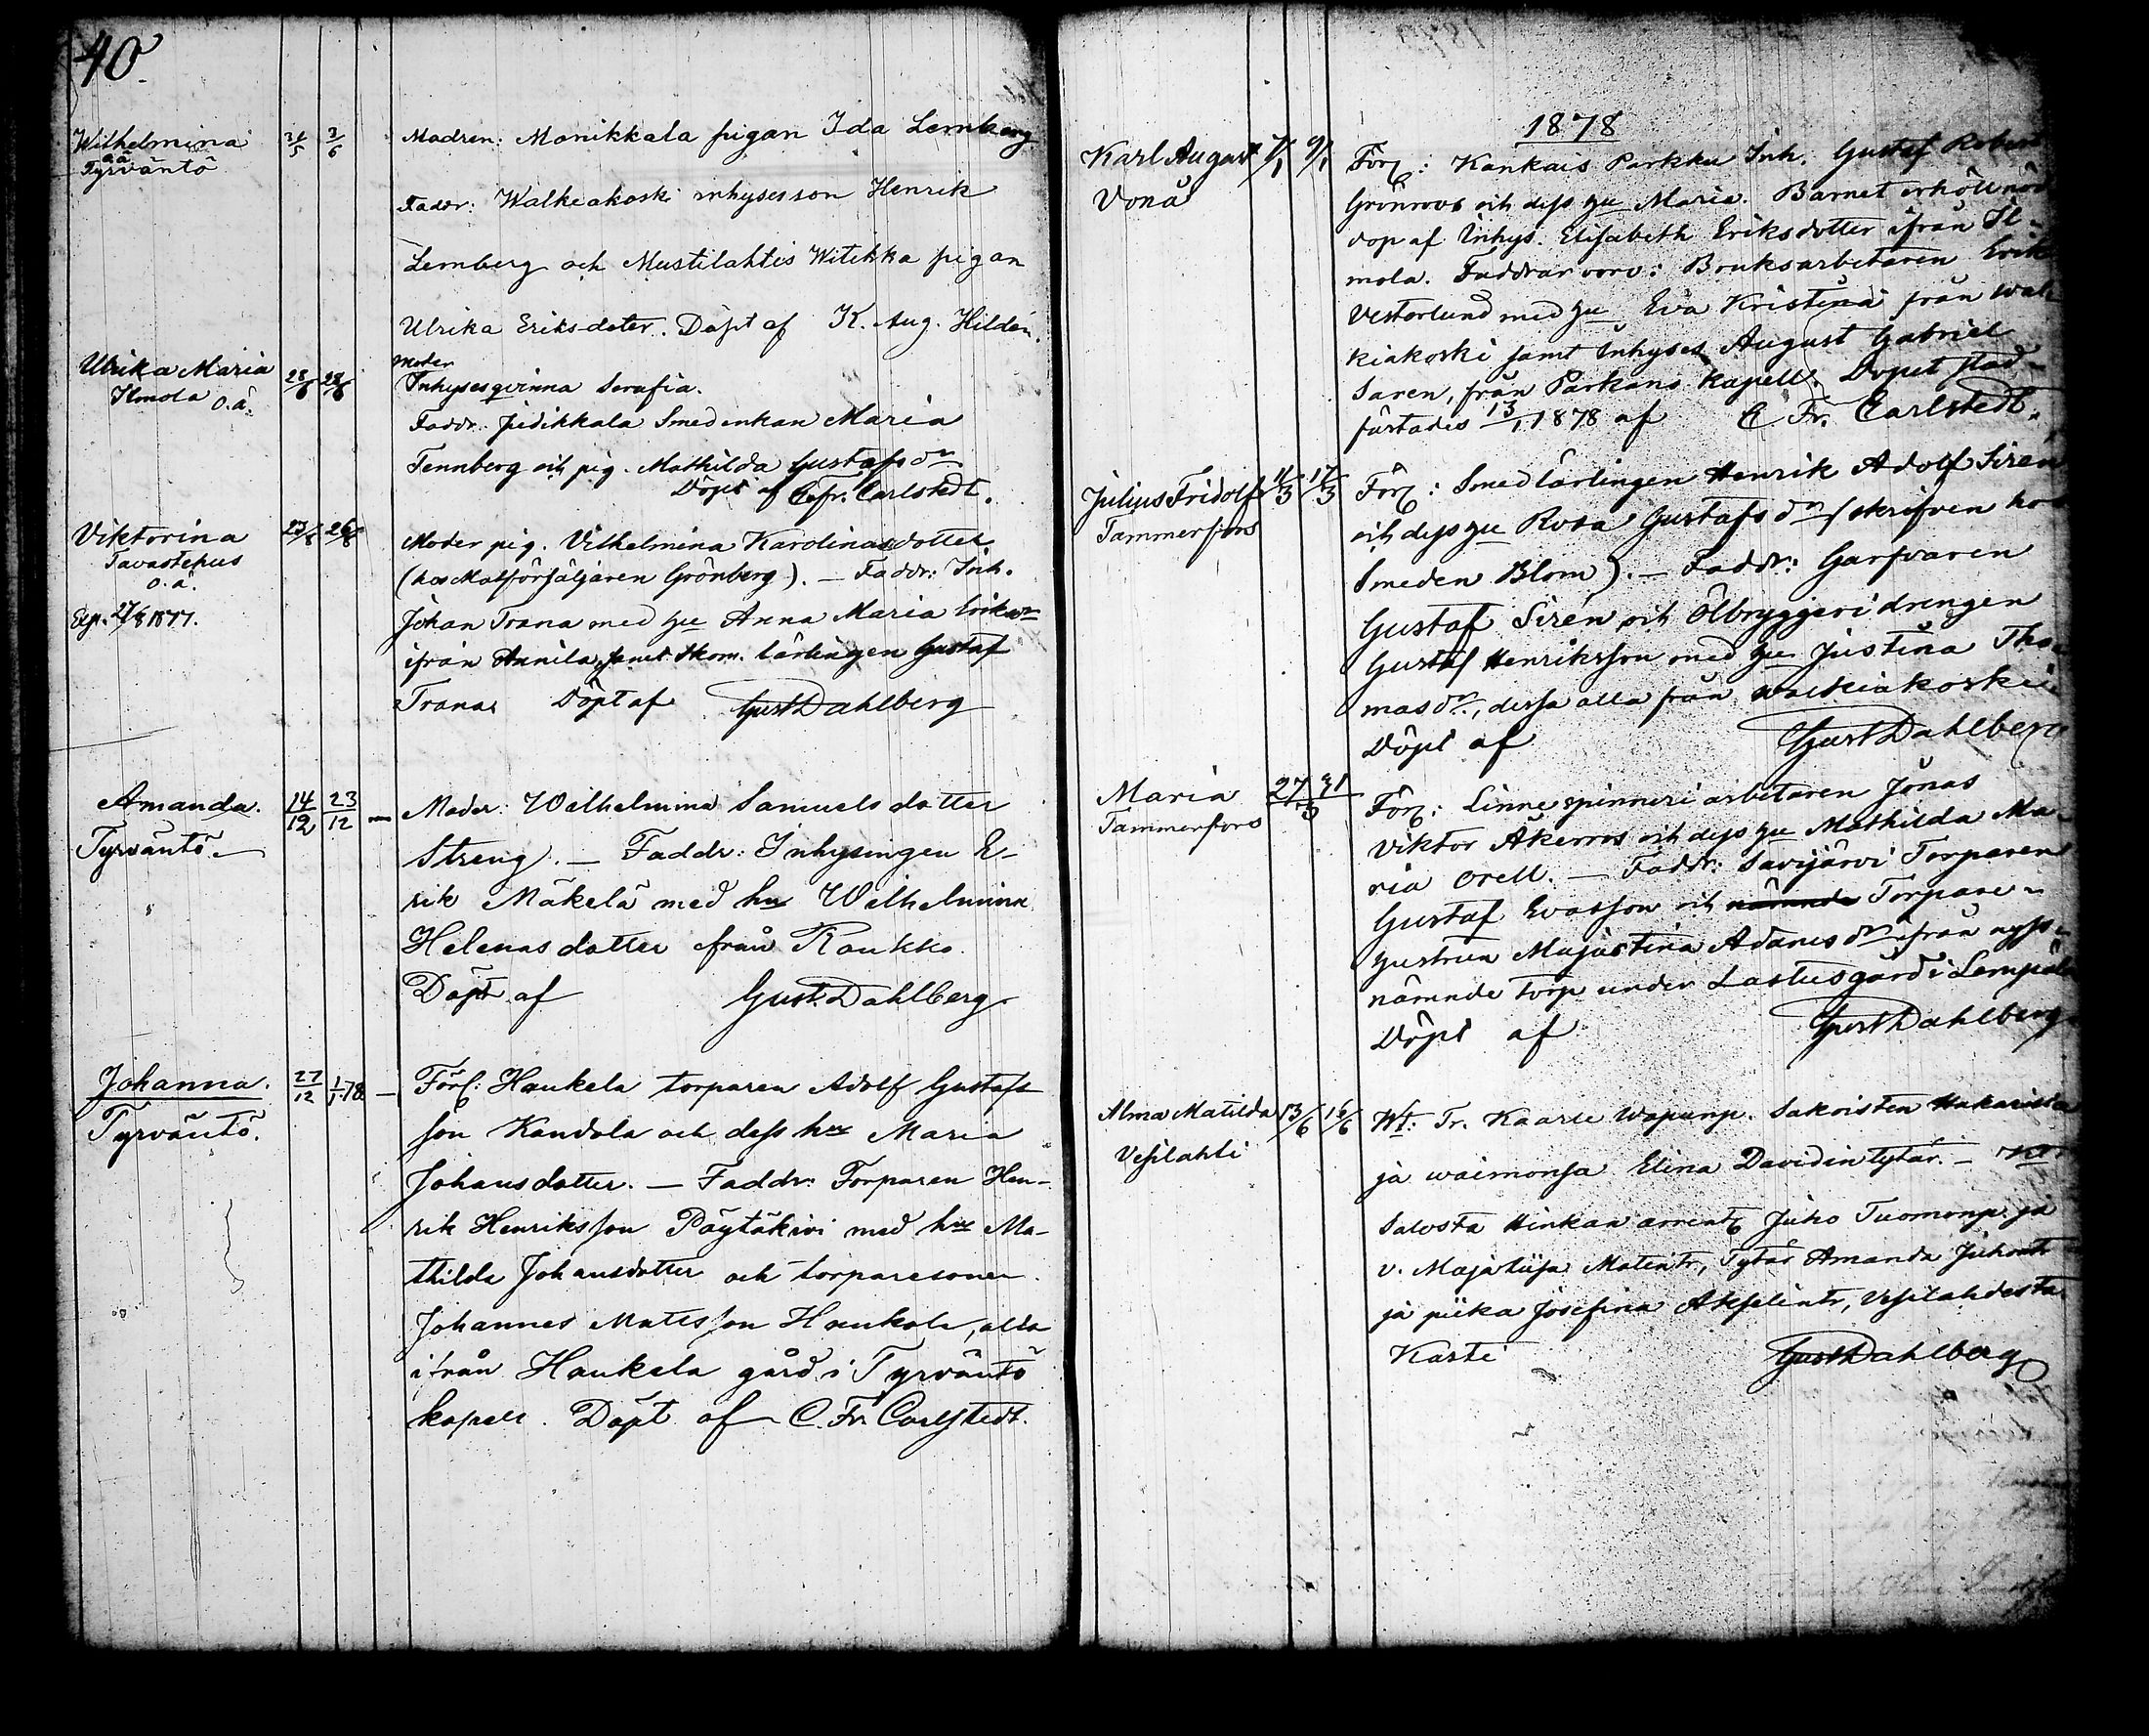 40
Wilhelmina 31/5 3/6 Modren: Monikkala pigan Ida Lernberg
oä
Tyrväntö
Faddr: Walkeakoski inhysesson Henrik
Lernberg och Mustilahtis Witikka pigan
Ulrika Eriksdoter. Döpt af K. Aug. Hildén.
Ulrika Maria 28/6 28/6 Moder
Ilmola o.ä. Inhysesqvinna Serafia.
Faddr: Jidikkala Smedenkan Maria
Tennberg och pig. Mathilda Gustafsdr
Döpt af C. Fr. Carlstedt.
Viktorina 26/8 Moder pig. Vilhelmina Karolinasdotter
Tavastehus (hos Matförsäljaren Grönberg). — Faddr: Inh.
o.ä.
Exp. 27/8 1877. Johan Trana med hu Anna Maria Eriksdr
ifrån Annila, samt Skom. lärlingen Gustaf
Trana. Döpt af Gust Dahlberg
Amanda. 14/12 23/12 — Moder: Wilhelmina Samuelsdotter
Tyrväntö — Streng. — Faddr: Inhysingen E-
rik Mäkelä med hu Wilhelmina
Helenasdotter från Koukko.
Döpt af Gust. Dahlberg
Johanna. 27/12 1/1 78 — Förl: Haukela torparen Adolf Gustafs
Tyrväntö. son Kandola och dess hu Maria
Johansdotter. — Faddr: Torparen Hen-
rik Henriksson Pöytäkivi med hu Ma-
thilda Johansdotter och torparesonen
Johannes Mattsson Haukola, alla
ifrån Haukela gård i Tyrväntö
kapell. Döpt af C. Fr. Carlstedt.
1878
Karl August 7/1 9/1 Förl: Kankais Parkku Inh. Gustaf Robert
Vonå Grönroos och dess hu Maria. Barnet erhöll nöd
dop af Inhys. Elisabeth Eriksdotter ifrån Il-
mola. Faddrar voro: Bruksarbetaren Erik
Vesterlund med hu Eva Kristina från Wal-
kiakoski samt Inhyses August Gabriel
Saren, från Parkano kapell. Dopet stad-
fästades 13/1 1878 af C. Fr. Carlstedt.
Julius Fridolf 11/3 17/3 Förl: Smedlärlingen Henrik Adolf Siren
Tammerfors och dess hu Rosa Gustafsdr (skrifven hos
Smeden Blom). — Faddr: Garfvaren
Gustaf Sirén och Ölbryggeridrengen
Gustaf Henriksson med hu Justina Tho-
masdr, dessa alla från Walkiakoski.
Döpt af Gust Dahlberg
Maria 27/3 31 Förl: Linnespinneriarbetaren Jonas
Tammerfors Viktor Åkerros och dess hu Mathilda Ma-
ria Orell. — Faddr: Savijärvi Torparen
Gustaf Evasson och nämnde Torpare-
hustrun Majastina Adamsdr från nyss-
nämnde torp under Lastusgård i Lempäla
Döpt af Gust Dahlberg
Alma Matilda 13/6 16/6 Wt: Tr. Kaarle Wapunp. Sakoisten
Vesilahti ja waimonsa Elina Davidintytär. —
Salosta Hinkan Juho Tuomonp. ja
v. Majaliisa Matintr, Tytär Amanda Juhontr
ja piika Josefina Akselintr, Vesilahdesta.
Kasti Gust Dahlberg